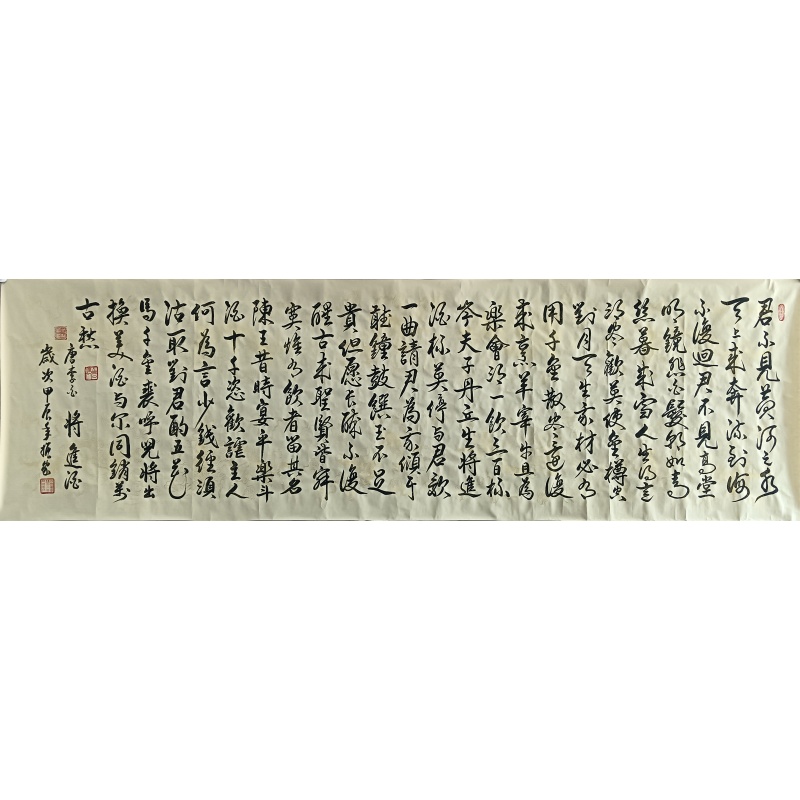 君不見黃河之水
天上來奔流到海
不復迴君不見高堂
明鏡悲白髮朝如青
絲暮成雪人生得意
須盡歡莫使金樽空
對月天生我材必有
用千金散盡還復
來烹羊宰牛且為
樂會須一飲三百杯
岑夫子丹丘生將進
酒杯莫停与君歌
一曲請君為我傾耳
聽鐘鼓饌玉不足
貴但愿長醉不復
醒古來聖賢皆寂
寞惟有飲者留其名
陳王昔時宴平樂斗
酒十千恣歡謔主人
何為言少錢徑須
沽取對君酌五花
馬千金裘呼兒將出
換美酒与尔同銷萬
古愁
唐李白 將進酒
歲次甲辰年